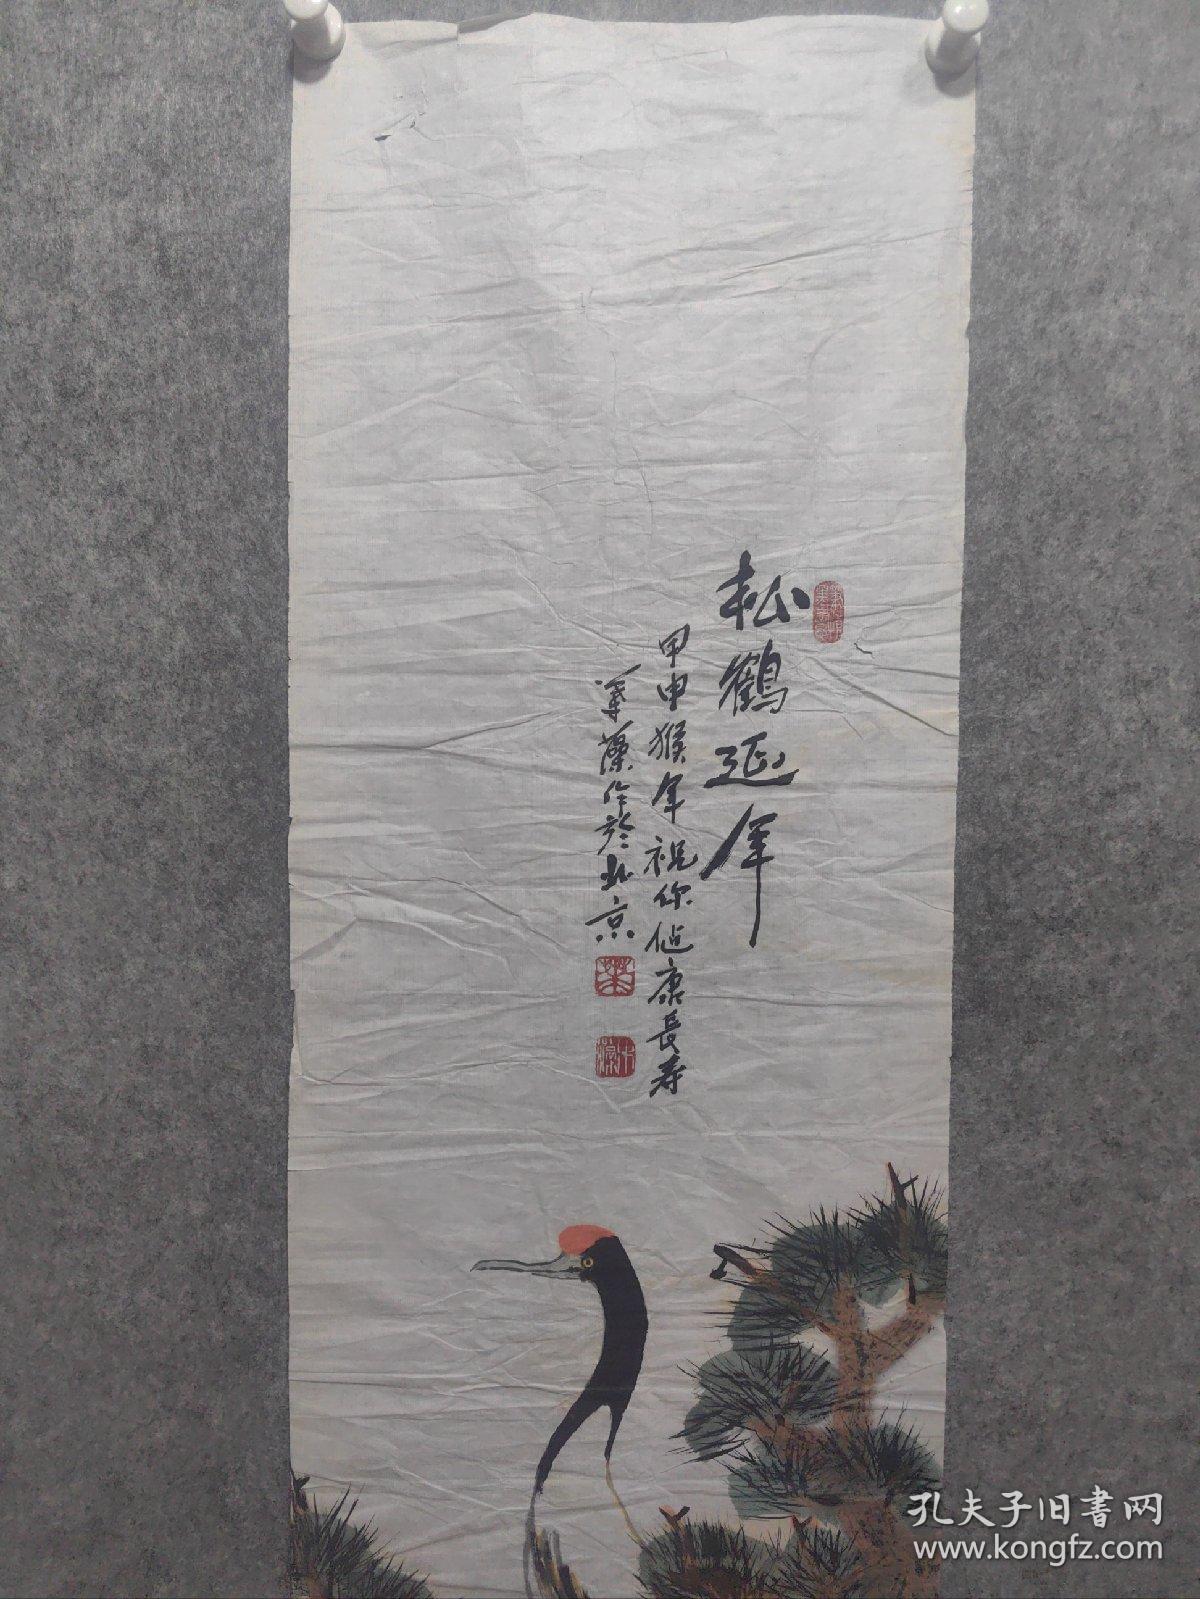 松鶴延年
甲申猴年祝你健康長寿
藻作於北京
孔夫子旧書网
www.kongfz.com